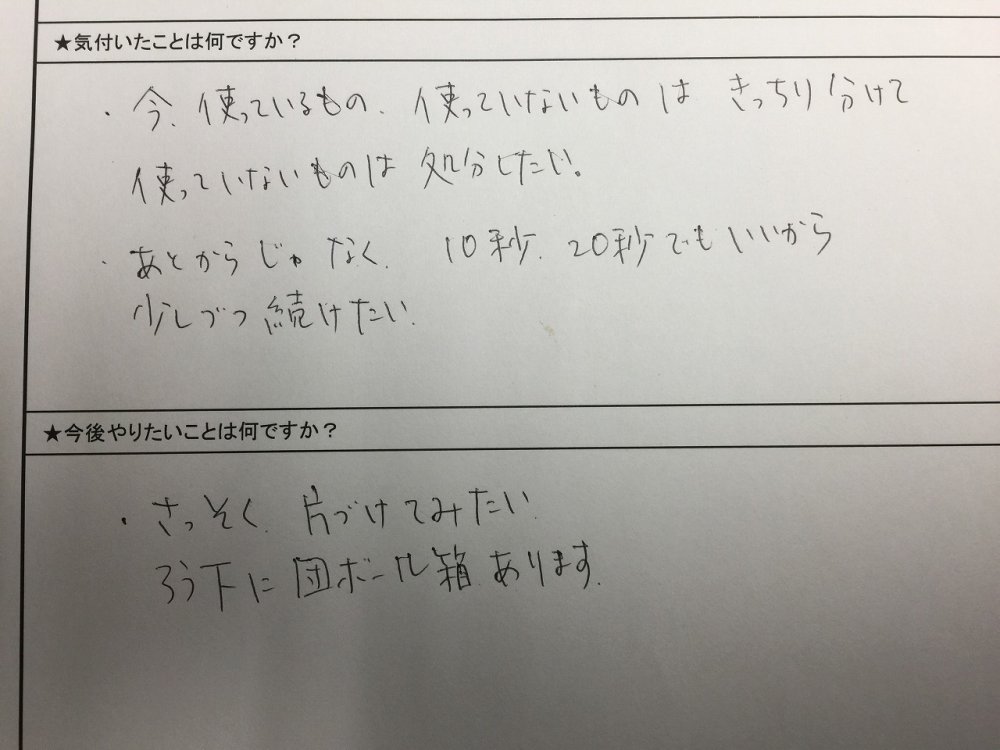 ★気付いたことは何ですか？
・今、使っているもの、使っていないものは きっちり分けて
使っていないものは 処分したい。
・あとからじゃなく、10秒、20秒でもいいから
少しづつ続けたい。
★今後やりたいことは何ですか？
・さっそく、片づけてみたい。
ろう下に団ボール箱、あります。